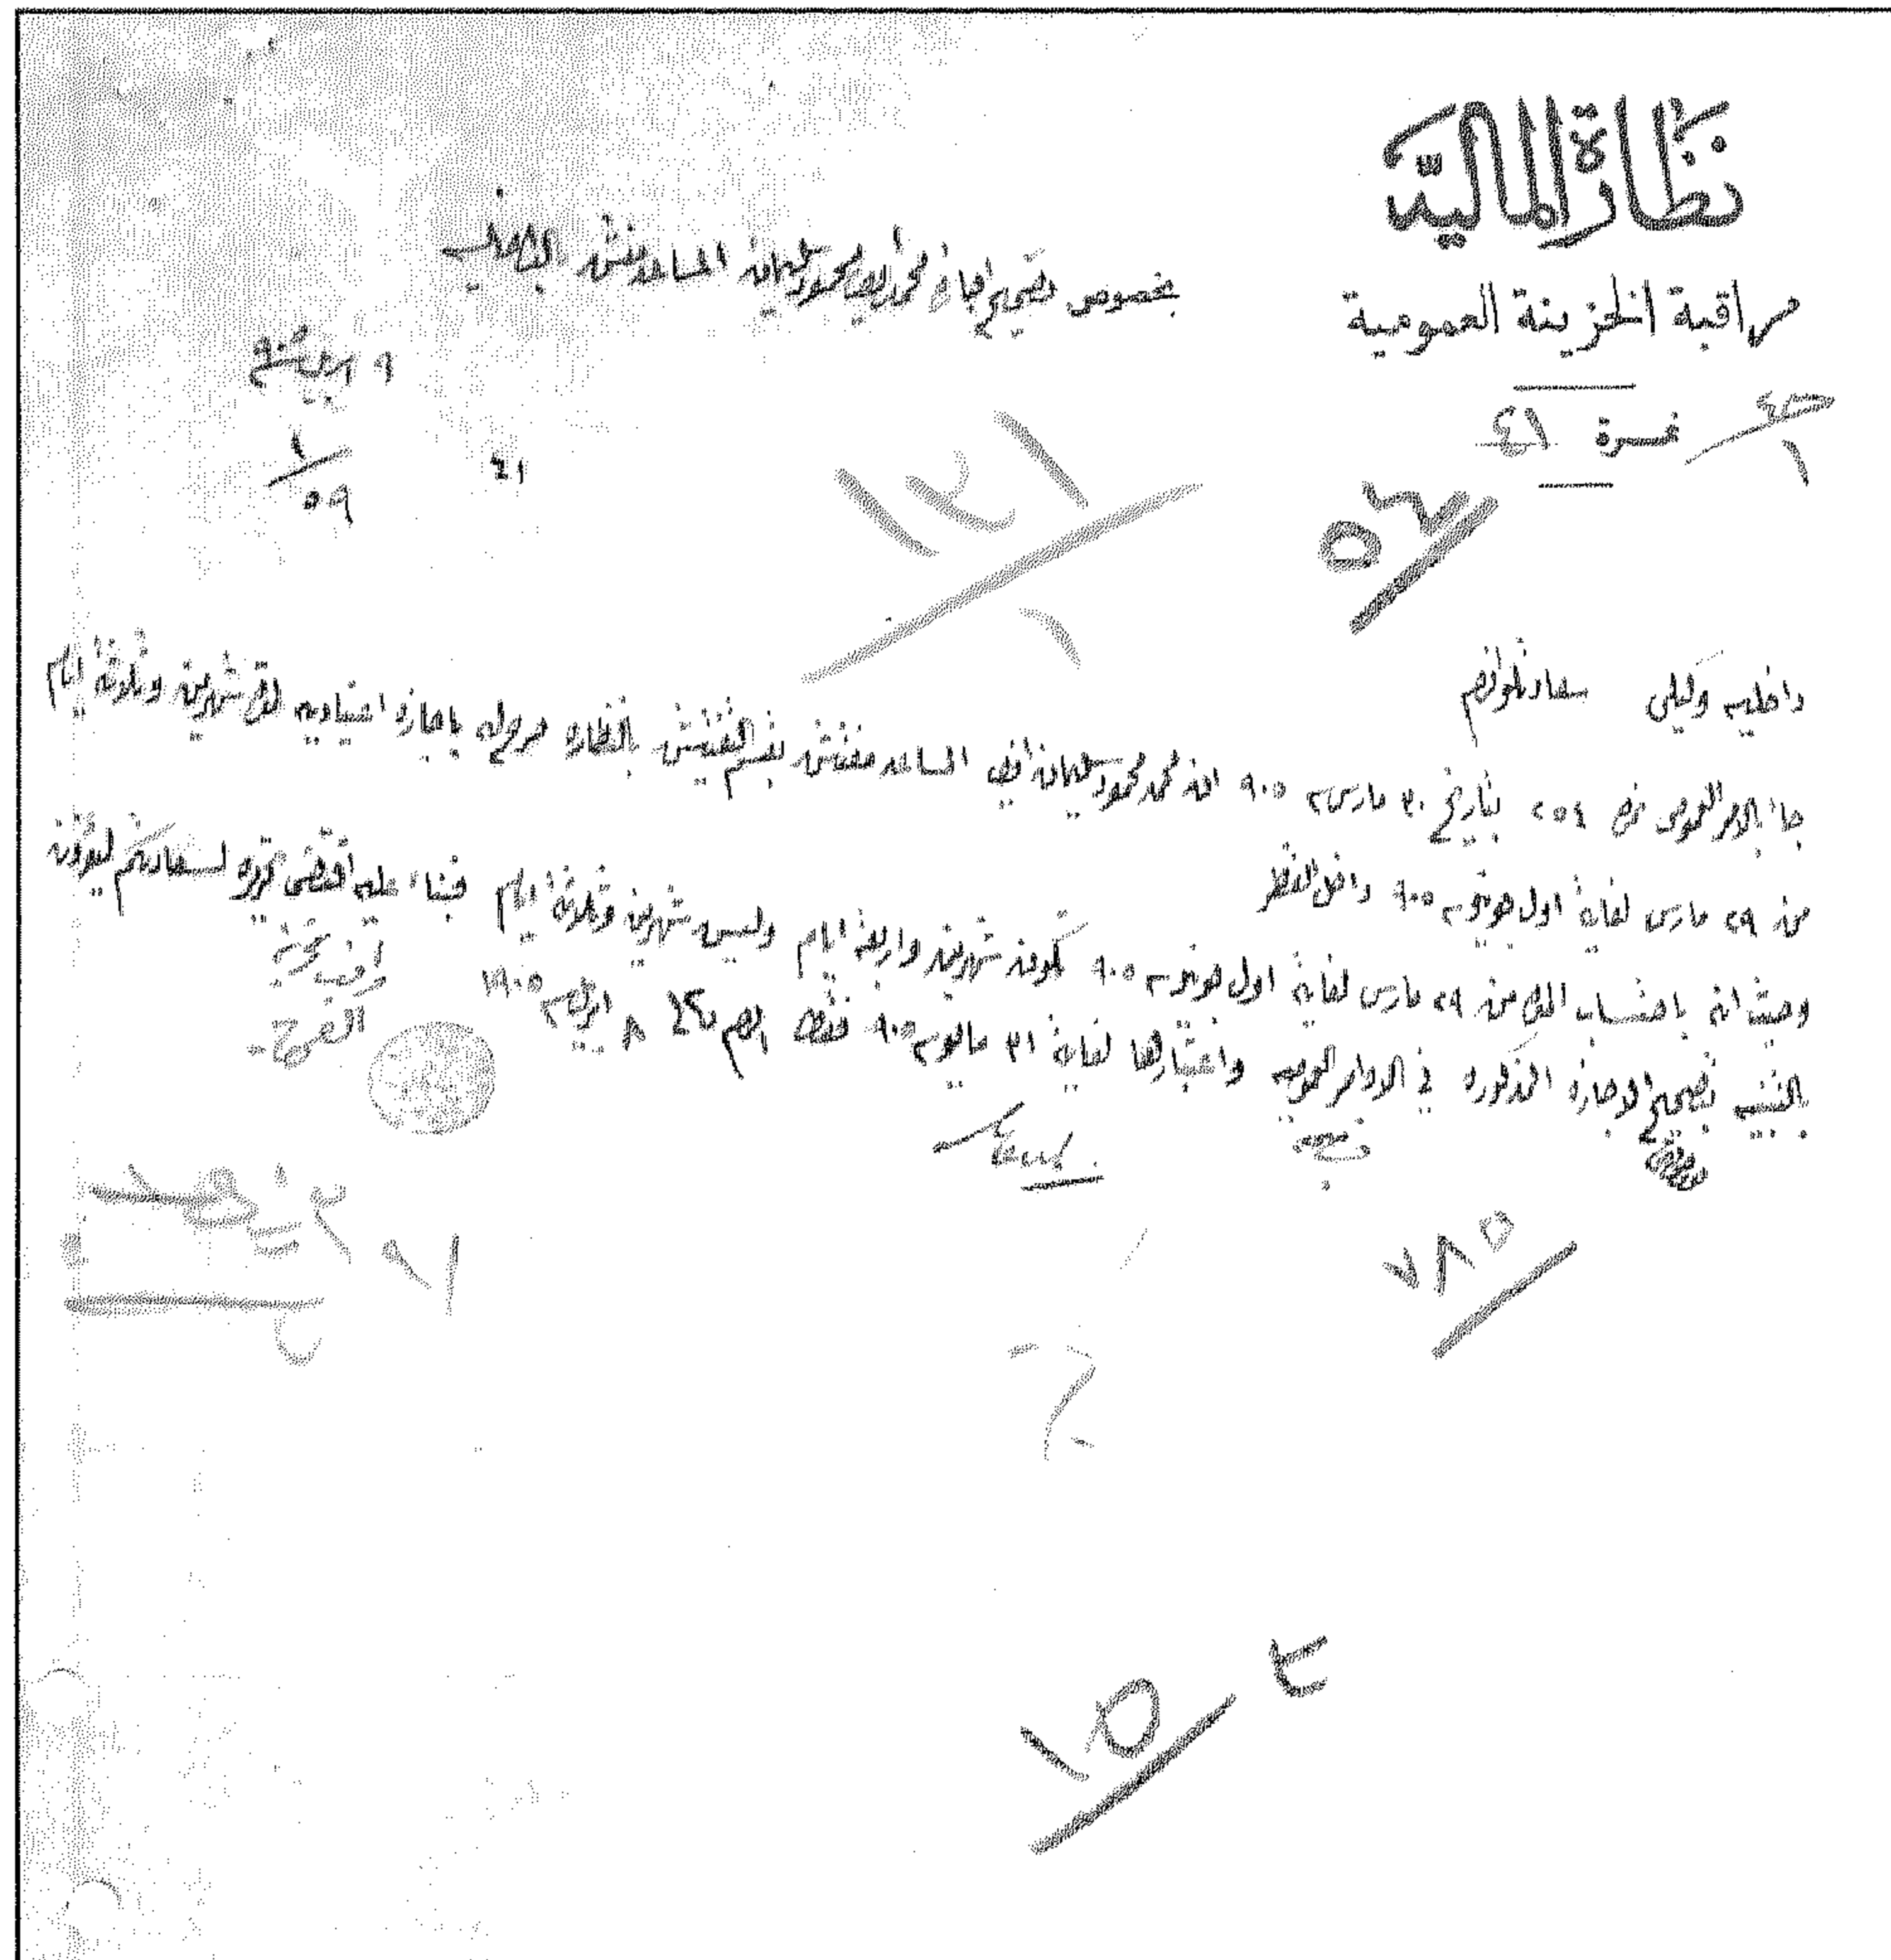 نظارة المالية
مراقبة الخزينة العمومية
نمرة ٤١
بخصوص تصحيح اجازة محمد محمود سليمان المساعد مفتش بالداخلية
٩ ابريل سنة ٩٠٥
٤١
١
٥٩
١٢١
١
٥٤
داخليه وكيلى سعادتلو افندم
جاء بالامر العمومى نمرة ٢٥٤ بتاريخ ٣٠ مارس سنة ٩٠٥ ان محمد محمود سليمان افندى المساعد مفتش بقسم التفتيش بالنظارة مرخص له باجازة اعتياديه لمدة شهرين وثلاثة ايام
من ٢٩ مارس لغاية اول يونيو سنة ٩٠٥ داخل القطر
وحيث انه باحتساب المدة من ٢٩ مارس لغاية اول يونيو سنة ٩٠٥ تكون شهرين واربعة ايام وليس شهرين وثلاثة ايام فبناء عليه اقتضى تحريره لسعادتكم ليؤذن
بالتنبيه بتصحيح الاجازة المذكوره في الاوامر العموميه واعتبارها لغاية ٣١ مايو سنة ٩٠٥ فقط افندم ٨ ابريل سنة ١٩٠٥
مراقب خزينة
العموم
٧٨٥
١٥